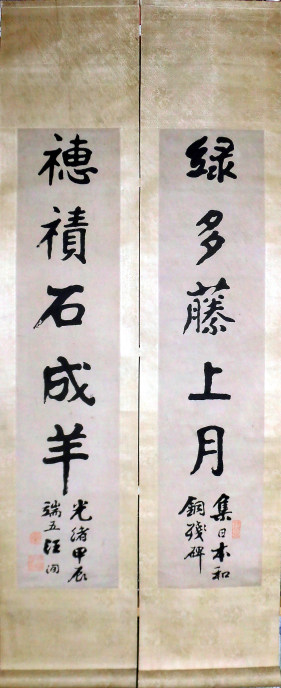 緑多藤上月
集日本和
銅殘碑
穗積石成羊
光緒甲辰
端五汪洵